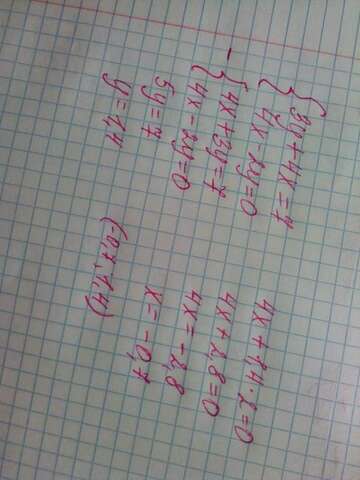 {3y + 4x = 7
{4x - 2y = 0
- {4x + 3y = 7
{4x - 2y = 0
5y = 7
y = 1,4
4x + 1,4 · 2 = 0
4x + 2,8 = 0
4x = -2,8
x = -0,7
(-0,7; 1,4)